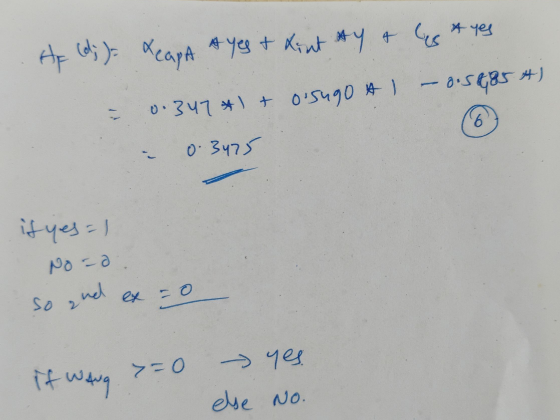 H_F (dj) = α_capA * yes + α_int * y + C_rs * yes
= 0.347 * 1 + 0.5490 * 1 - 0.5485 * 1
6
= 0.3475
if yes = 1
NO = 0
so 2nd ex = 0
if wAvg >= 0 → yes
else NO.